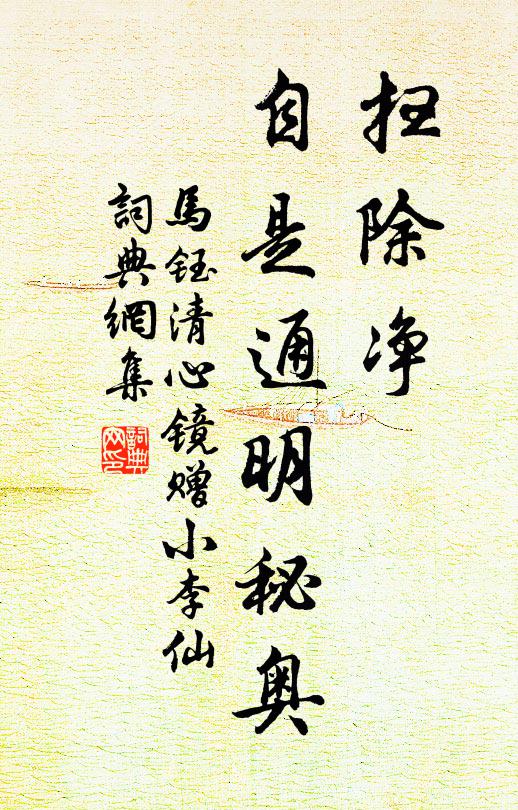 扫除净
自是通明秘奥
馬鈺清心镜赠小李仙
詞典網集
詞典
网印